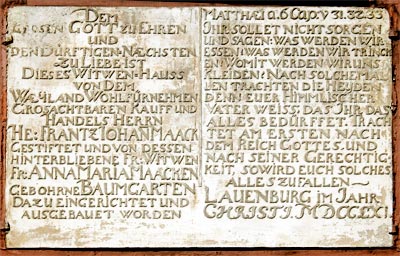 DEM
GROSEN GOTT ZU EHREN
UND
DEN DÜRFTIGEN NÆCHSTEN
ZU LIEBE IST
DIESES WITWEN-HAUSS
VON DEM
WEYLAND WOHLFÜRNEHMEN
GROSACHTBAREN KAUF UND
HANDELS HERRN
HE: FRANTZ IOHAN MAACK
GESTIFTET UND VON DESSEN
HINTERBLIEBENE FR: WITWEN
FR: ANNA MARIA MAACKEN
GEBOHRNE BAUMGARTEN
DAZU EINGERICHTET UND
AUSGEBAUET WORDEN
MATTHÆI a. 6 Cap: V 31. 32. 33
IHR SOLLET NICHT SORGEN
UND SAGEN: WAS WERDEN WIR
ESSEN: WAS WERDEN WIR TRINCK
EN: WOMIT WERDEN WIR UNS
KLEIDEN? NACH SOLCHEM AL
LEN TRACHTEN DIE HEYDEN
DENN EUER HIMMLISCHER
VATER WEISS, DAS IHR DAS
ALLES BEDÜRFFET. TRACH
TET AM ERSTEN NACH
DEM REICH GOTTES. UND
NACH SEINER GERECHTIG
KEIT, SO WIRD EUCH SOLCHES
ALLES ZUFALLEN
LAUENBURG IM JAHR
CHRISTI. MDCCLXI.